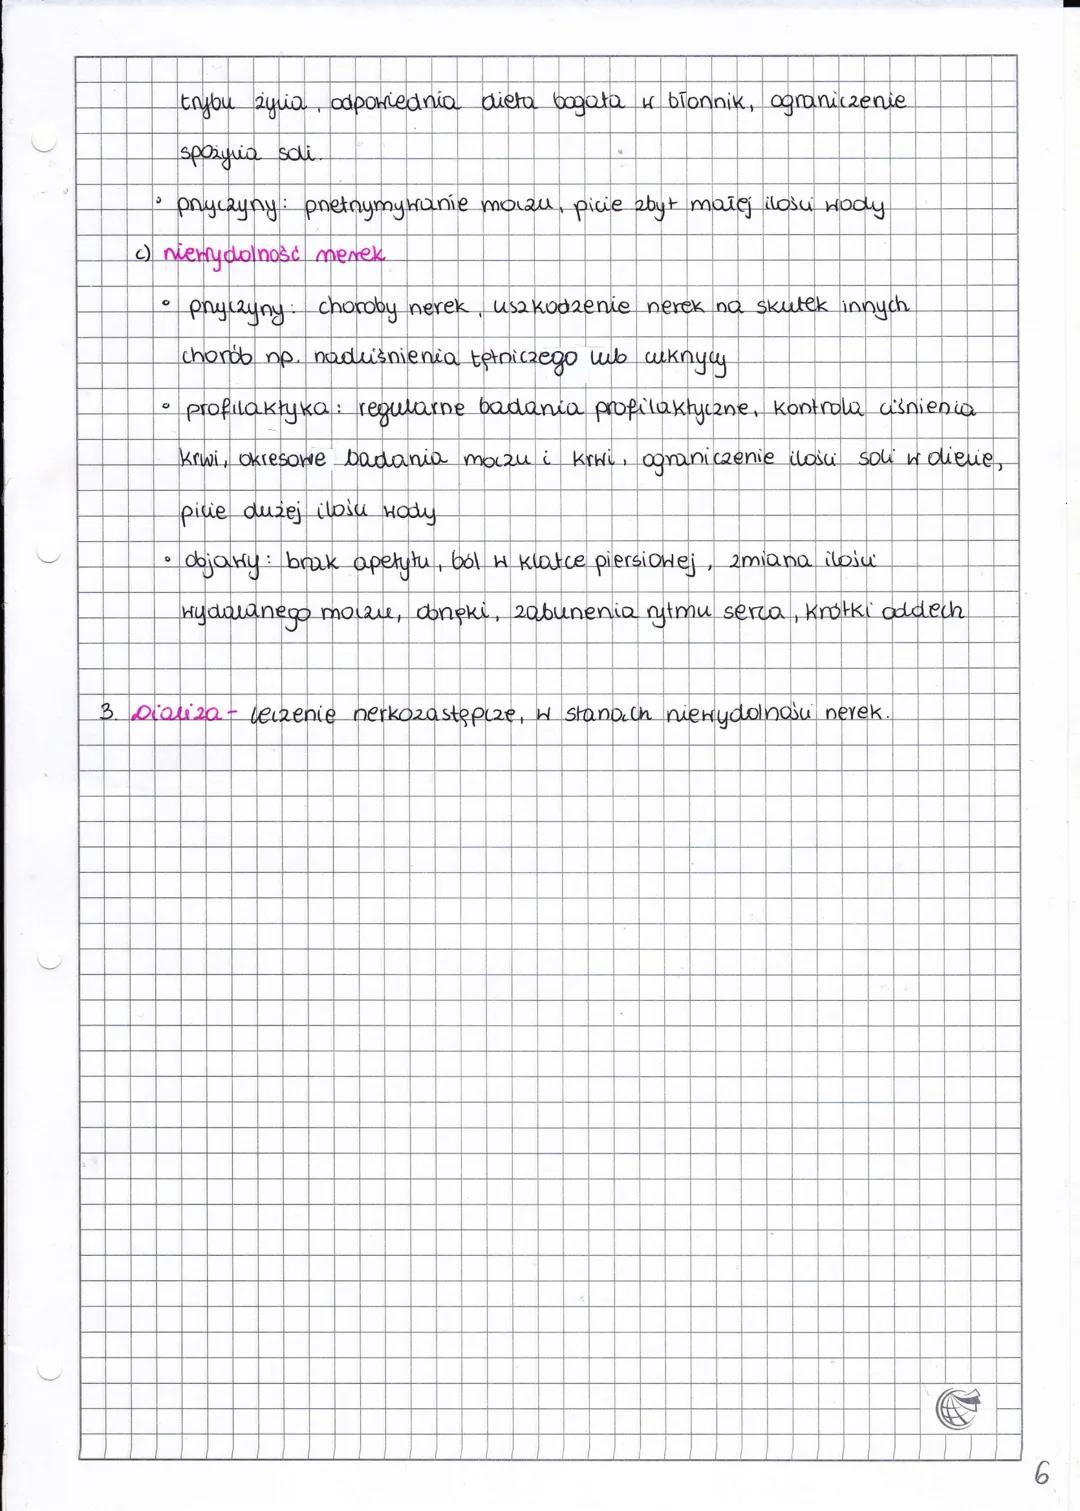 trybu życia, odpowiednia dieta bogata w błonnik, ograniczenie
spożycia soli.
• przyczyny: przetrzymywanie moczu, picie zbyt małej ilości wody
c) niewydolność nerek
• przyczyny: choroby nerek, uszkodzenie nerek na skutek innych
chorób np. nadciśnienia tętniczego lub cukrzycy
• profilaktyka: regularne badania profilaktyczne, kontrola ciśnienia
krwi, okresowe badania moczu i krwi, ograniczenie ilości soli w diecie,
picie dużej ilości wody
• objawy: brak apetytu, ból w klatce piersiowej, zmiana ilości
wydalanego moczu, obrzęki, zaburzenia rytmu serca, krótki oddech
3. Dializa - leczenie nerkozastępcze, w stanach niewydolności nerek.
6